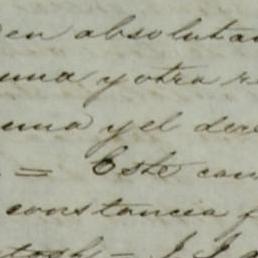 en absoluta
una y otra r
una y el dec
= Este can
constancia f